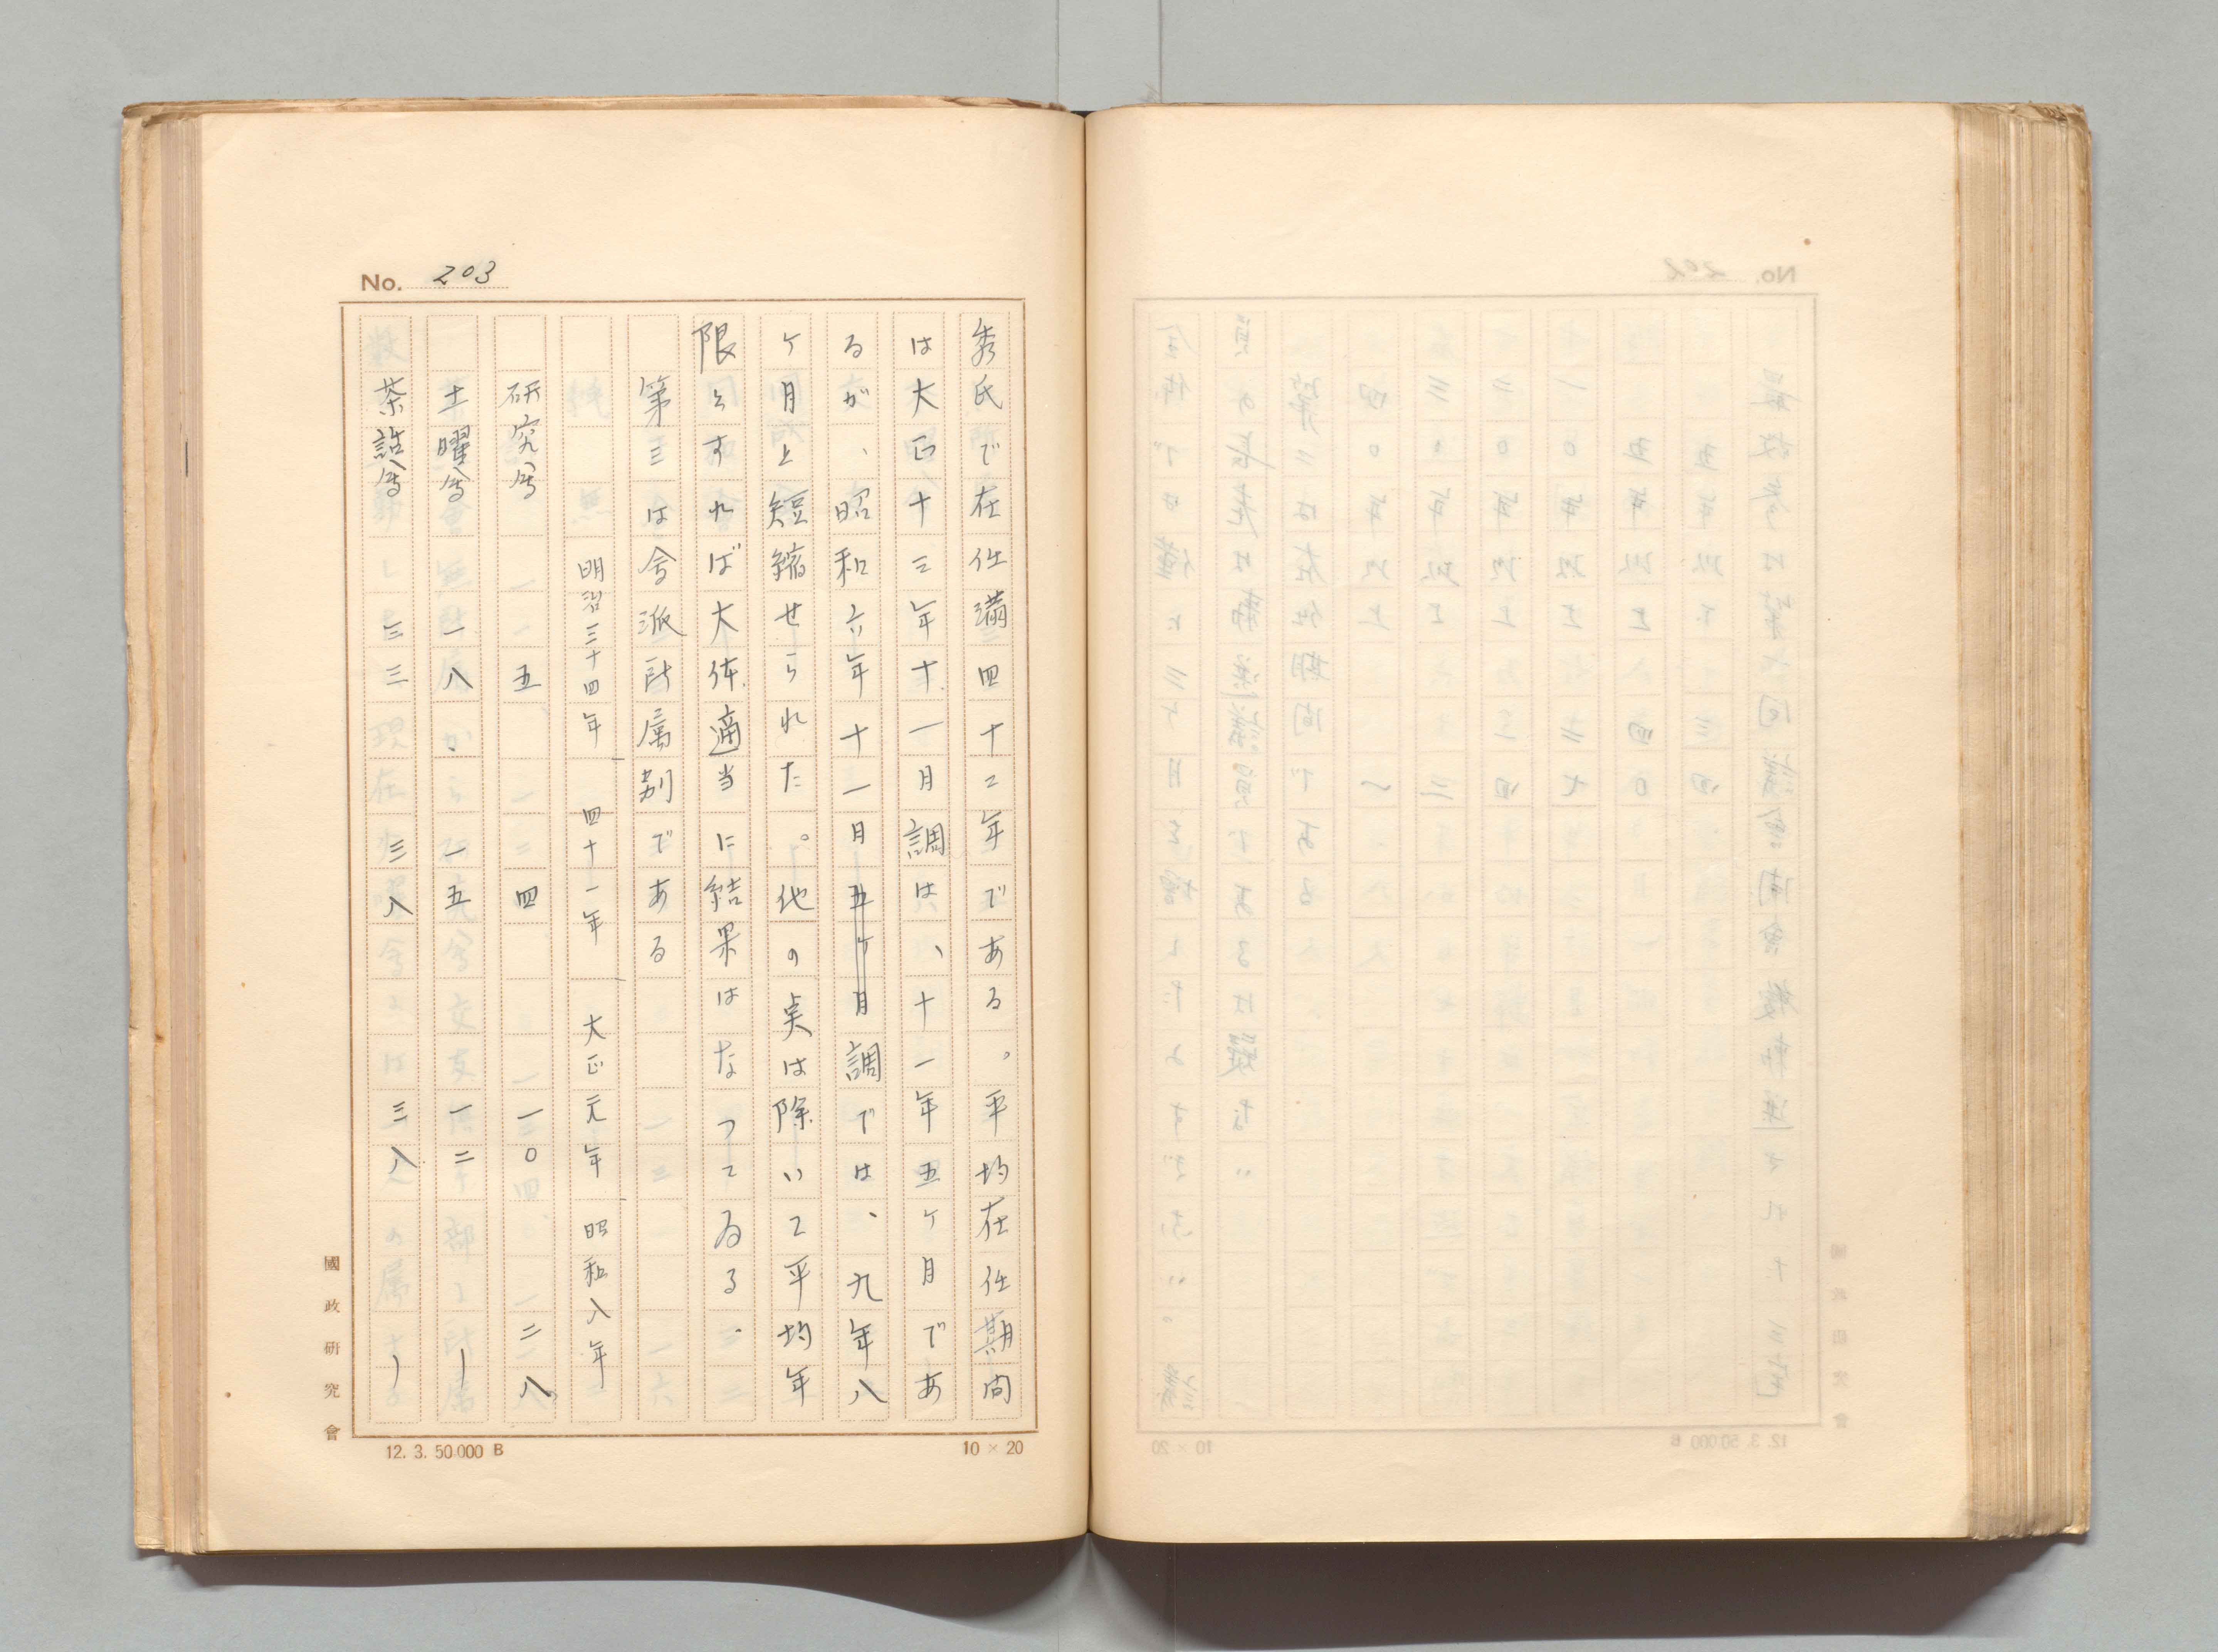 No. 203
秀氏で在任満四十二年である。平均在任期間
は大正十三年十一月調は、十一年五ヶ月であ
るが、昭和六年十一月五ヶ月調では、九年八
ヶ月と短縮せられた。他の点は除いて平均年
限とすれば大体適当に結果はなつてゐる。
第三は会派所属別である
明治三十四年 四十一年 大正元年 昭和八年
研究会 一五 四 一〇 二八
土曜会 一八 一五 一二 ー
茶話会 三三 三八 三八 ー
國政研究會
12. 3. 50.000 B
10 × 20